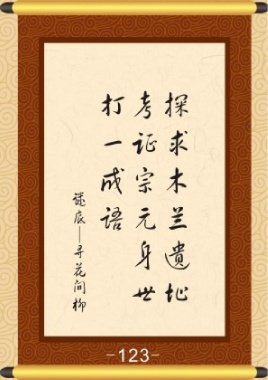 探求木兰遗址
考证宗元身世
打一成语
谜底——寻花问柳
-123-